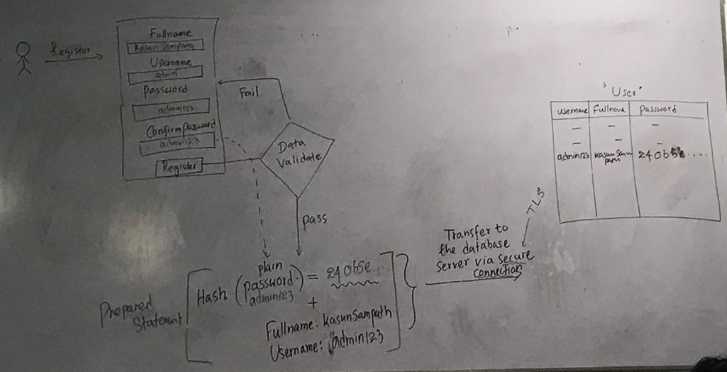 Register
Fullname
Kasun Sampath
Username
admin
Password
admin123
Confirm password
admin123
Register
Fail
Data
Validate
Pass
Prepared
Statement
Hash (plain password admin123) = 240b5e
+
Fullname: KasunSampath
Username: admin123
Transfer to
the database
server via secure
connection
TLS
"User"
username Fullname Password
- - -
- - -
admin123 KasunSam
path 240b5e....